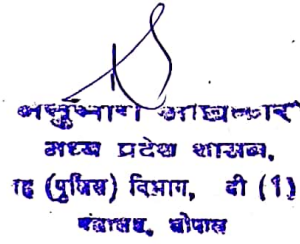 अनुभाग अधिकारी
मध्य प्रदेश शासन,
गृह (पुलिस) विभाग, बी (1)
मंत्रालय, भोपाल